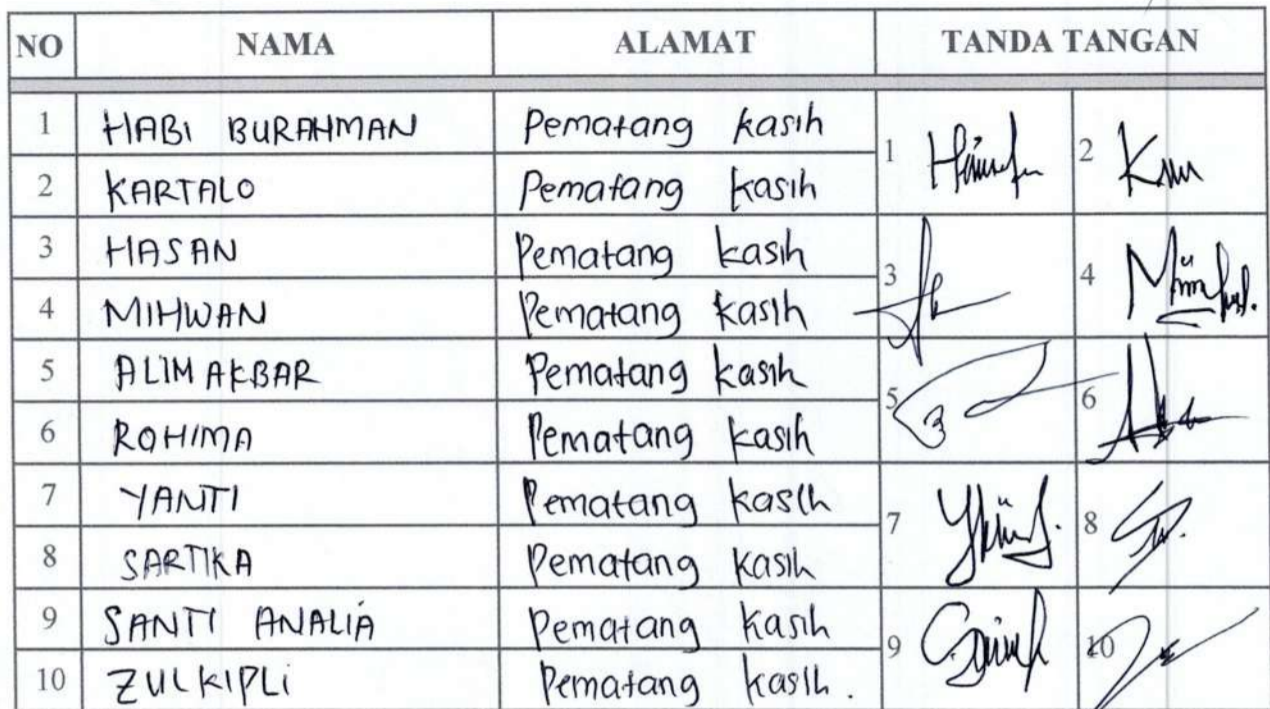 NO NAMA ALAMAT TANDA TANGAN
1 HABI BURAHMAN Pematang kasih 1 2
2 KARTALO Pematang kasih
3 HASAN Pematang kasih 3 4
4 MIHWAN Pematang kasih
5 ALIM AKBAR Pematang kasih 5 6
6 ROHIMA Pematang kasih
7 YANTI Pematang kasih 7 8
8 SARTIKA Pematang kasih
9 SANTI ANALIA Pematang kasih 9 10
10 ZULKIPLI Pematang kasih.